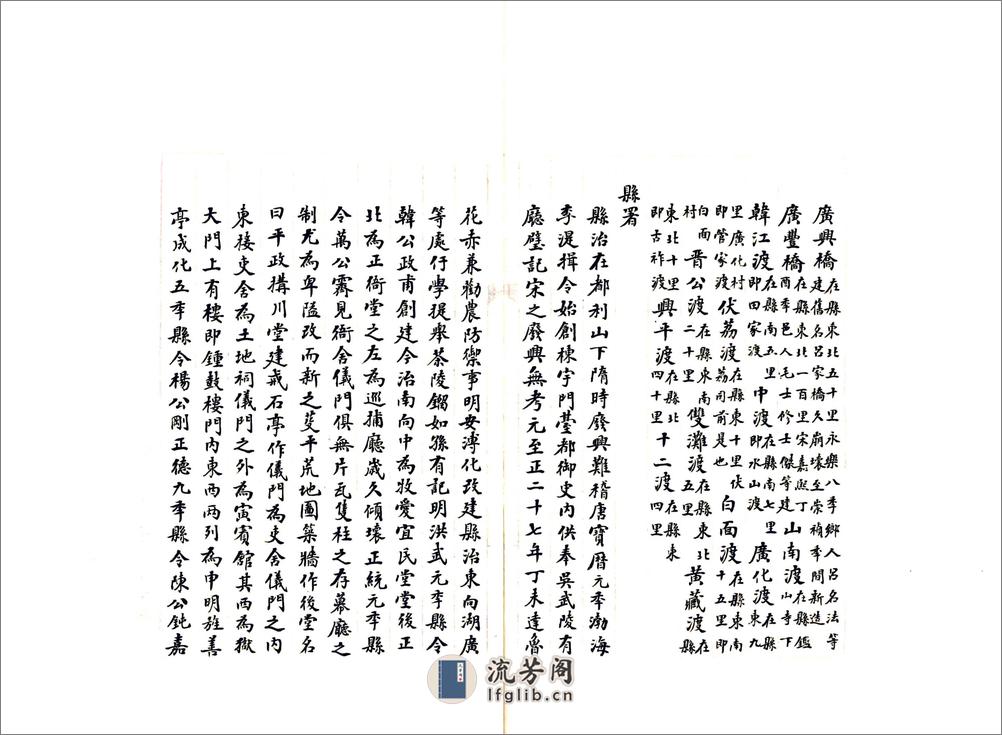 廣興橋在縣東北五十里永樂八季鄉人呂名法等建舊名呂家橋久崩壞至崇禎季間新造
廣豐橋在縣東北一百里宋嘉熙丁酉季邑人毛士修士傑等建山南渡在縣鑑山寺下
韓江渡在縣南五里即田家渡中渡在縣南七里即水山渡廣化渡在縣東九
里廣化村即管家渡伏荔渡在縣東十里伏荔司前是也白面渡在縣東南十五里即
白面村晋公渡在縣東南二十里雙灘渡在縣東北五里黃藏渡在縣
東北十里即古祚渡興平渡在縣北四十里十二渡在縣東四里
縣署
縣治在都利山下隋時廢興難稽唐寶曆元季渤海
季湜揖令始創棟宇門䑓都御史内供奉吳武陵有
廳壁記宋之廢興無考元至正二十七年丁未達魯
花赤兼勸農防禦事明安溥化改建縣治東向湖廣
等處仃學提舉茶陵鎦如孫有記明洪武元季縣令
韓公政甫創建今治南向中為牧愛宜民堂堂後正
北為正衙堂之左為巡捕廳歲久傾壞正統元季縣
令萬公霽見衙舍儀門俱無片瓦隻柱之存幕廳之
制尤為卑隘改而新之芟平荒地圍築牆作後堂名
曰平政搆川堂建戒石亭作儀門為吏舍儀門之内
東接吏舍為土地祠儀門之外為寅賓館其西為獄
大門上有樓即鍾鼓樓門内東西兩列為申明旌善
亭成化五季縣令楊公剛正德九季縣令陳公鈍嘉
流芳阁
lfglib.cn